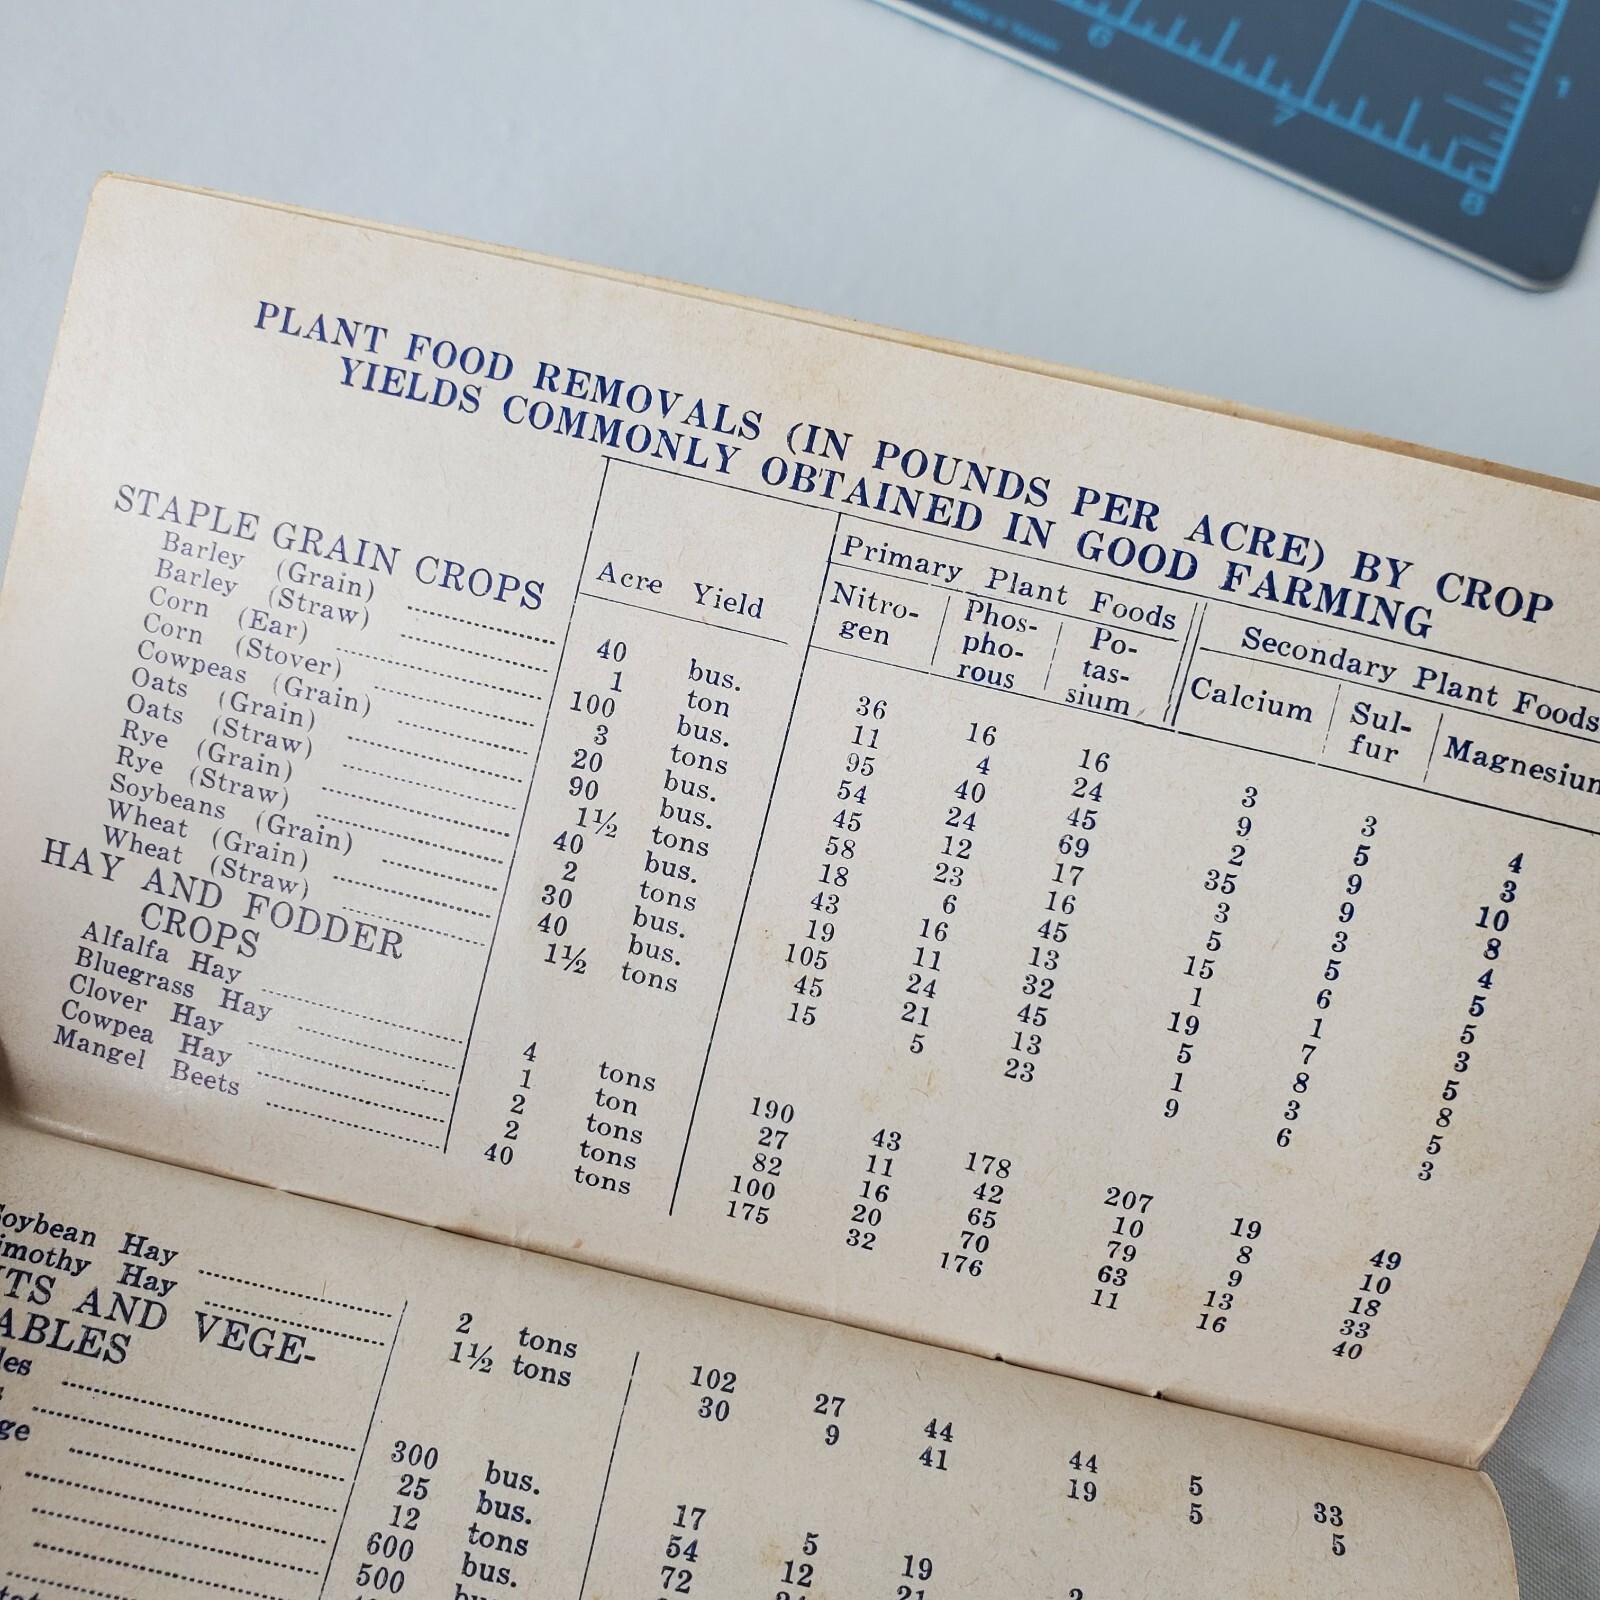 6 7 8 1
PLANT FOOD REMOVALS (IN POUNDS PER ACRE) BY CROP
YIELDS COMMONLY OBTAINED IN GOOD FARMING
Acre Yield
Primary Plant Foods
Secondary Plant Foods
Nitro-
gen
Phos-
pho-
rous
Po-
tas-
sium
Calcium
Sul-
fur
Magnesium
STAPLE GRAIN CROPS
Barley (Grain) 40 bus. 36 16 16 3 3 4
Barley (Straw) 1 ton 11 4 24 9 5 3
Corn (Ear) 100 bus. 95 40 45 2 9 10
Corn (Stover) 3 tons 54 24 69 35 9 8
Cowpeas (Grain) 20 bus. 45 12 17 3 3 4
Oats (Grain) 90 bus. 58 23 16 5 5 5
Oats (Straw) 1½ tons 18 6 45 15 6 5
Rye (Grain) 40 bus. 43 16 13 1 1 3
Rye (Straw) 2 tons 19 11 32 19 7 5
Soybeans (Grain) 30 bus. 105 24 45 5 8 8
Wheat (Grain) 40 bus. 45 21 13 1 3 5
Wheat (Straw) 1½ tons 15 5 23 9 6 3
HAY AND FODDER
CROPS
Alfalfa Hay 4 tons 190 43 178 207 19 49
Bluegrass Hay 1 ton 27 11 42 10 8 10
Clover Hay 2 tons 82 16 65 79 9 18
Cowpea Hay 2 tons 100 20 70 63 13 33
Mangel Beets 40 tons 175 32 176 11 16 40
Soybean Hay 2 tons 102 27 44 44 5 33
Timothy Hay 1½ tons 30 9 41 19 5 5
AND VEGE-
300 bus. 17 5 19
25 bus. 54 12 21
12 tons 72
600 bus.
500